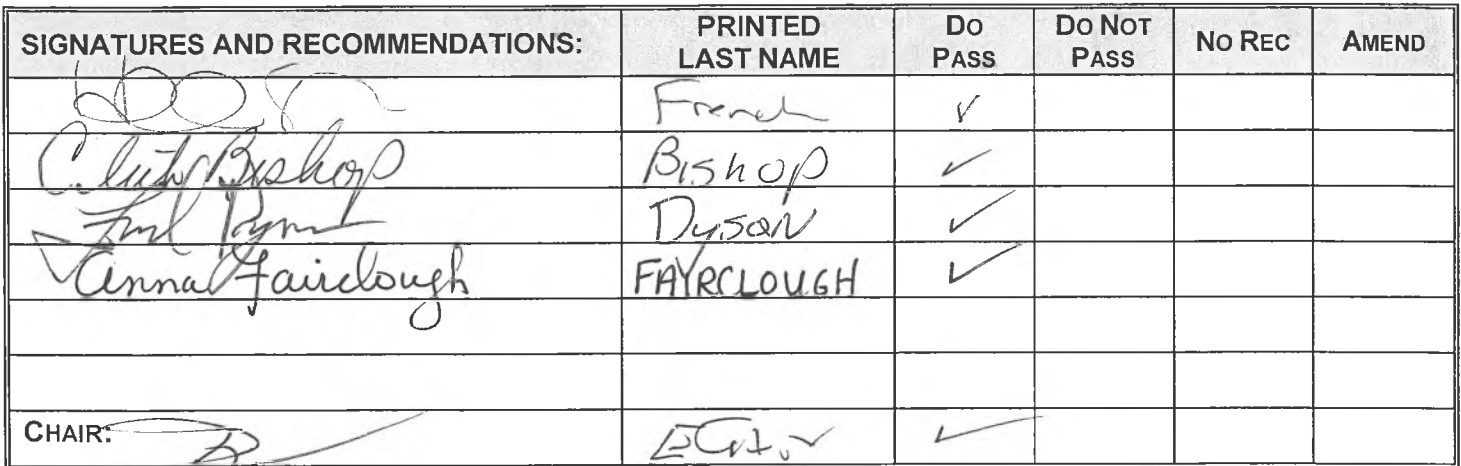 SIGNATURES AND RECOMMENDATIONS: PRINTED LAST NAME DO PASS DO NOT PASS NO REC AMEND
French ✓
Bishop Bishop ✓
Dyson ✓
Anna Fairclough FAYRCLOUGH ✓
CHAIR: ✓